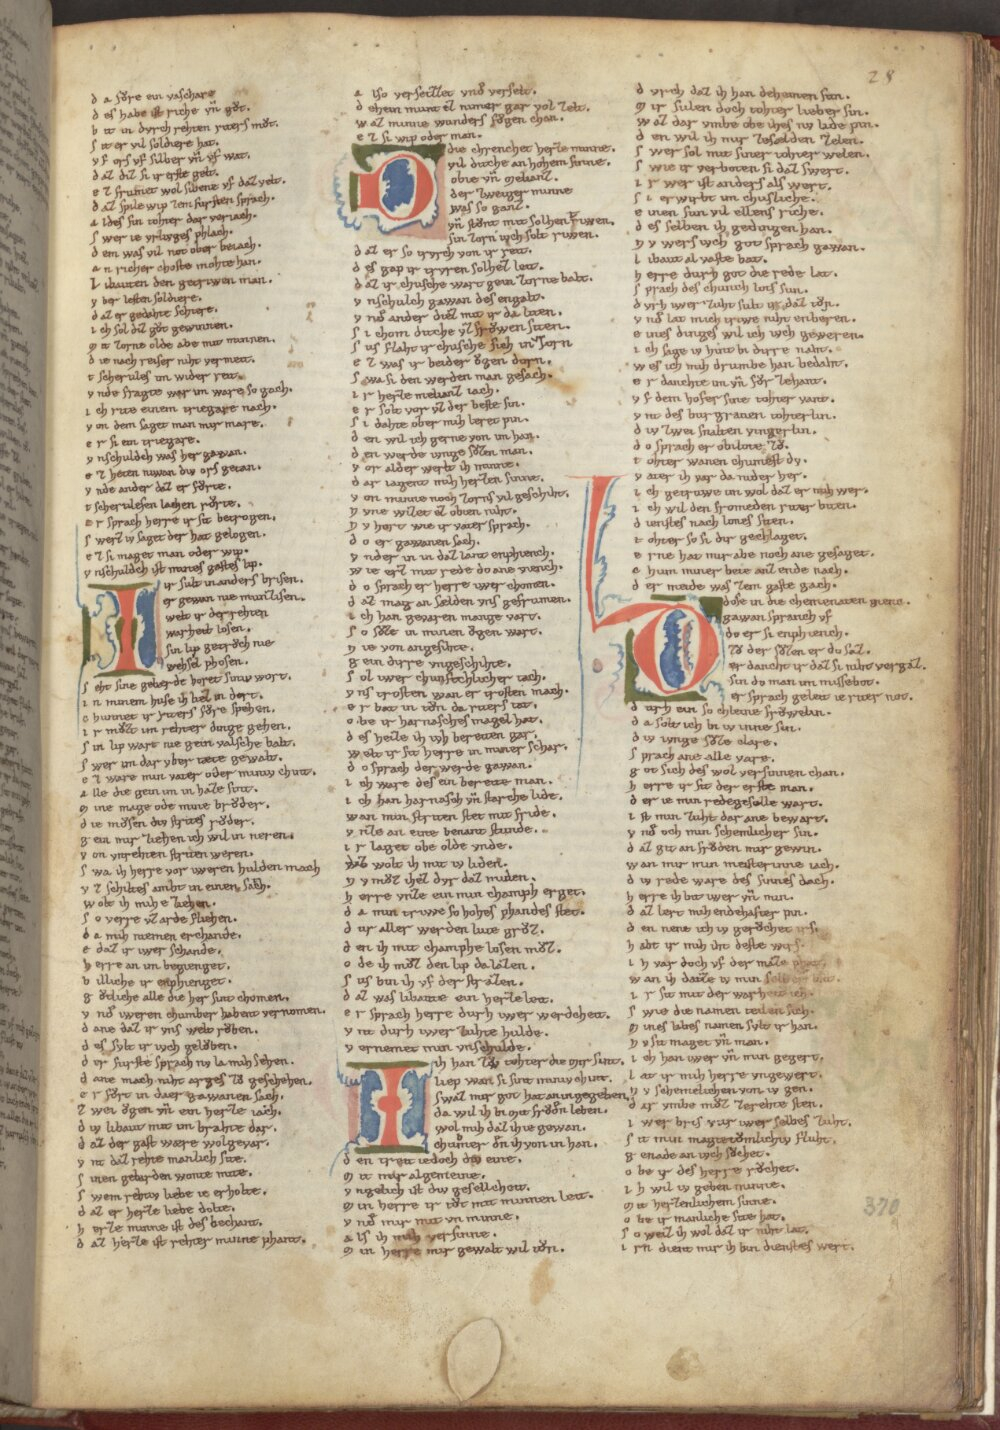 28
d a fůre ein valschare
d es habe ist riche vn̄ gůt.
b it in dvrch rehten riters můt.
s it er vil soldiere hat.
v f ors vf silber vn̄ vf wat.
d az diz si ir erste gelt.
e z frumet wol sibene vf daz velt.
d az spile wip zem fursten sprach.
a ldes sin tohter dar veriach.
s wer ie vrlivges phlach.
d em was vil not ober beiach.
a n richer choste mohte han.
l ibauten den getriwen man.
v ber lesten soldiere.
d az er gedaht schiere.
i ch sol diz gůt gewinnen.
m it zorne olde abe mit minnen.
d ie nach reise niht vermeit.
t scherules im wider reit.
v nde fragte war im ware so gach.
i ch rite einem triegare nach.
v on dem saget man mir mare.
e r si ein triegare.
v nschuldech was her gawan.
e z heten niwan div ors getan.
v nde ander daz er fůrte.
t scherulesen lachen růrte.
e r sprach herre ir sit betrogen.
s werz iv saget der hat gelogen.
e z si maget man oder wip.
v nschuldech ist mines gastes lip.
I r sult in anders brisen.
er gewan nie munzisen.
welt ir der rehten
warheit losen.
sin lip getrůch nie
wehsel phosen.
s eht sine geberde horet siniv wort.
i n minem huse ih liez in dort.
c hunnet ir riters fůre spehen.
i r můzt im rehter dinge gehen.
s in lip wart nie gein valsche balt.
s wer im dar vber tete gewalt.
e z ware min vater oder miniv chint.
a lle die gein im in haze sint.
m ine mage ode mine brůder.
d ie můsen div strites růder.
g ein mir ziehen ich wil in neren.
v on vnrehten striten weren.
s wa ih herre vor iweren hulden mach
v z schiltes ambt in einen sach.
w olt ih mih e ziehen.
s o verre vz arde fliehen.
d a mih niemen erchande.
e daz ir iwer schande.
h erre an im begienget.
b illiche ir enphienget.
g ůtliche alle die her sint chomen.
v nd iweren chumber habent vernomen.
d ane daz ir vns welt rŏben.
d es sult ir ivch gelŏben.
d er furste sprach nv la mih sehen.
d ane mach niht arges zů geschehen.
e r fůrt in daer gawanen sach.
z wei ŏgen vn̄ ein herze iach.
d iv libaut mit im brahte dar.
d az der gast wære wolgevar.
v nt daz rehte manlich site.
s inen gebarden wonte mite.
s wem rehtiv liebe ie erholte.
d az er herze liebe dolte.
h erze minne ist des bechant.
d az herze ist rehter minne phant.
a lso verseilzet vnd versezt.
d ehein munt ez nimer gar vol zelt.
w az minne wunders fůgen chan.
e z si wip oder man.
D ie chrenchet herze minne.
vil diche an hohem sinne.
obie vn̄ melianz.
der zweiger minne
was so ganz.
vn̄ stůnt mit solhen triwen.
sin zorn iwch solt riwen.
d az er so zvrch von ir reit.
d es gap ir trvren solhez leit.
d az ir chusche wart gein zorne balt.
v nschulch gawan des engalt.
v nd ander diez mit ir da liten.
s i chom diche vz frŏwen siten.
s us flaht ir chusche sich in zorn
e z was ir beider ŏgen dorn.
s wa si den werden man gesach.
i r herze melianz iach.
e r solt vor vz der beste sin.
s i dahte ober mih leret pin.
d en wil ich gerne von im han.
d en werde ivnge sůzen man.
v or alder werlt ih minne.
d ar iagent mih herzen sinne.
v on minne noch zorns vil geschiht.
n vne wizet ez obien niht.
n v hort wie ir vater sprach.
d o er gawanen sach.
v nder in in daz lant enphiench.
w ie erz mit rede do ane viench.
d o sprach er herre iwer chomen.
d az mag an sælden vns gefrumen.
i ch han gevaren mange vart.
s o sůze in minen ŏgen wart.
n ie von angesihte.
g ein dirre vngeschihte.
s ol iwer chunftchlicher tach.
v ns trosten wan er trosten mach.
e r bat in tůn da riters tat.
o be ir harnasches magel hat.
d es heile ih iwh bereiten gar.
w elt ir sit herre in miner schar.
d o sprach der werde gawan.
i ch ware des ein bereite man.
i ch han harnach vn̄ starche lide.
w an min striten stet mit fride.
v nze an eine benant stunde.
i r laget obe olde vnde.
wolt ih mit iv liden.
n v můz ihez dvr daz miden.
h erre vnze ein min champh erget.
d a min triwe so hohes phandes stet.
d ur aller werden livte grůz.
d en ih mit champhe losen můz.
o de ih můz den lip da lazen.
s us bin ih vf der strazen.
d az was libaute ein herze leit.
e r sprach herre durh iwer werdcheit.
v nt durh iwer zuhte hulde.
v ernemet min vnschulde.
I ch han zwo tohter die mir sint.
liep wan si sint miniv chint.
swaz mir got hat an in gegeben.
da wil ih bi mit frŏden leben.
wol mih daz ih ie gewan.
chumer den ih von in han.
d en treit iedoch div eine.
m it mir algemeine.
v ngelich ist div geselleschaft.
m in herre ir tůt mit minnen leit.
v nd mir mit vn minne.
a ls ih mih versinne.
m in herre mir gewalt wil tůn.
d vrch daz ih han deheinen sun.
m ir sulen doch tohter lieber sin.
w az dar vmbe obe ihes nv lide pin.
d en wil ih mir zesælden zelen.
s wer sol mit siner tohter welen.
s wie ir verboten si daz swert.
i r wer ist anders als wert.
s i erwirbt im chusliche.
e inen sun vil ellens riche.
d es selben ih gedingen han.
n v wers iwch got sprach gawan.
l ibaut al vaste bat.
h erre durh got die rede lat.
s prach des chunich lots sun.
d vrh iwer zuht sult ir daz tůn.
v nd lat mich triwe niht enberen.
e ines dinges wil ich iwch geweren.
i ch sage iv hint bi dirre naht.
w es ich mih drumbe han bedaht.
e r danchte im vn̄ fůr zehant.
v f dem hofer sine tohter vant.
v nt des burgraven tohterlin.
d iv zwei snalten vingerlin.
d o sprach er obilote zů.
t ohter wanen chumest dv.
v ater ih var da nider her.
i ch getruwe im wol daz er mih wer.
i ch wil den fromeden riter biten.
d ienstes nach lones siten.
t ohter so si dir gechlaget.
e rne hat mir abe noch ane gesaget.
c hum miner bete anz ende nach.
d er meide was zem gaste gach.
D o si in die chemenaten giench.
gawan spranch vf
do er si enphiench.
zů der sůzen er do saz.
er danchit ir daz si niht vergaz.
sin do man im missebot.
er sprach geleit ie riter not.
d urh ein so chleine frŏwelin.
d a solt ich bi iv inne sin.
d iv ivnge sůze clare.
s prach ane alle vare.
g ot sich des wol versinnen chan.
h erre ir sit der erste man.
d er ie min redegeselle wart.
i st min zuht dar ane bewart.
v nd och min schemlicher sin.
d az git an frŏden mir gewin.
w an mir min meisterinne iach.
d iv rede ware des sinnes dach.
h erre ih bit iwer vn̄ min.
d az lert mih endehafter pin.
d en nene ich iv gerůchet irs.
h abt ir mih iht deste wirs.
i h var doch vf der maze phat.
w an ih dazze iv min selber bat.
i r sit mit der warheit ich.
s wie die namen teilen sich.
m ines libes namen sult ir han.
n v sit maget vn̄ man.
i ch han iwer vn̄ min gegert.
l at ir mih herre vngewert.
n v schemelichen von iv gen.
d ar vmbe můz zerehte sten.
i wer bris vur iwer selbes zuht.
s it min magetůmlichiv fluht.
g enade an iwch sůchet.
o be ir des herre růchet.
i h wil iv geben minne.
m it herzenlichem sinne.
o be ir manliche site hat.
s o weiz ih wol daz ir niht lat.
i rn dient mir ih bin dienstes wert.
370